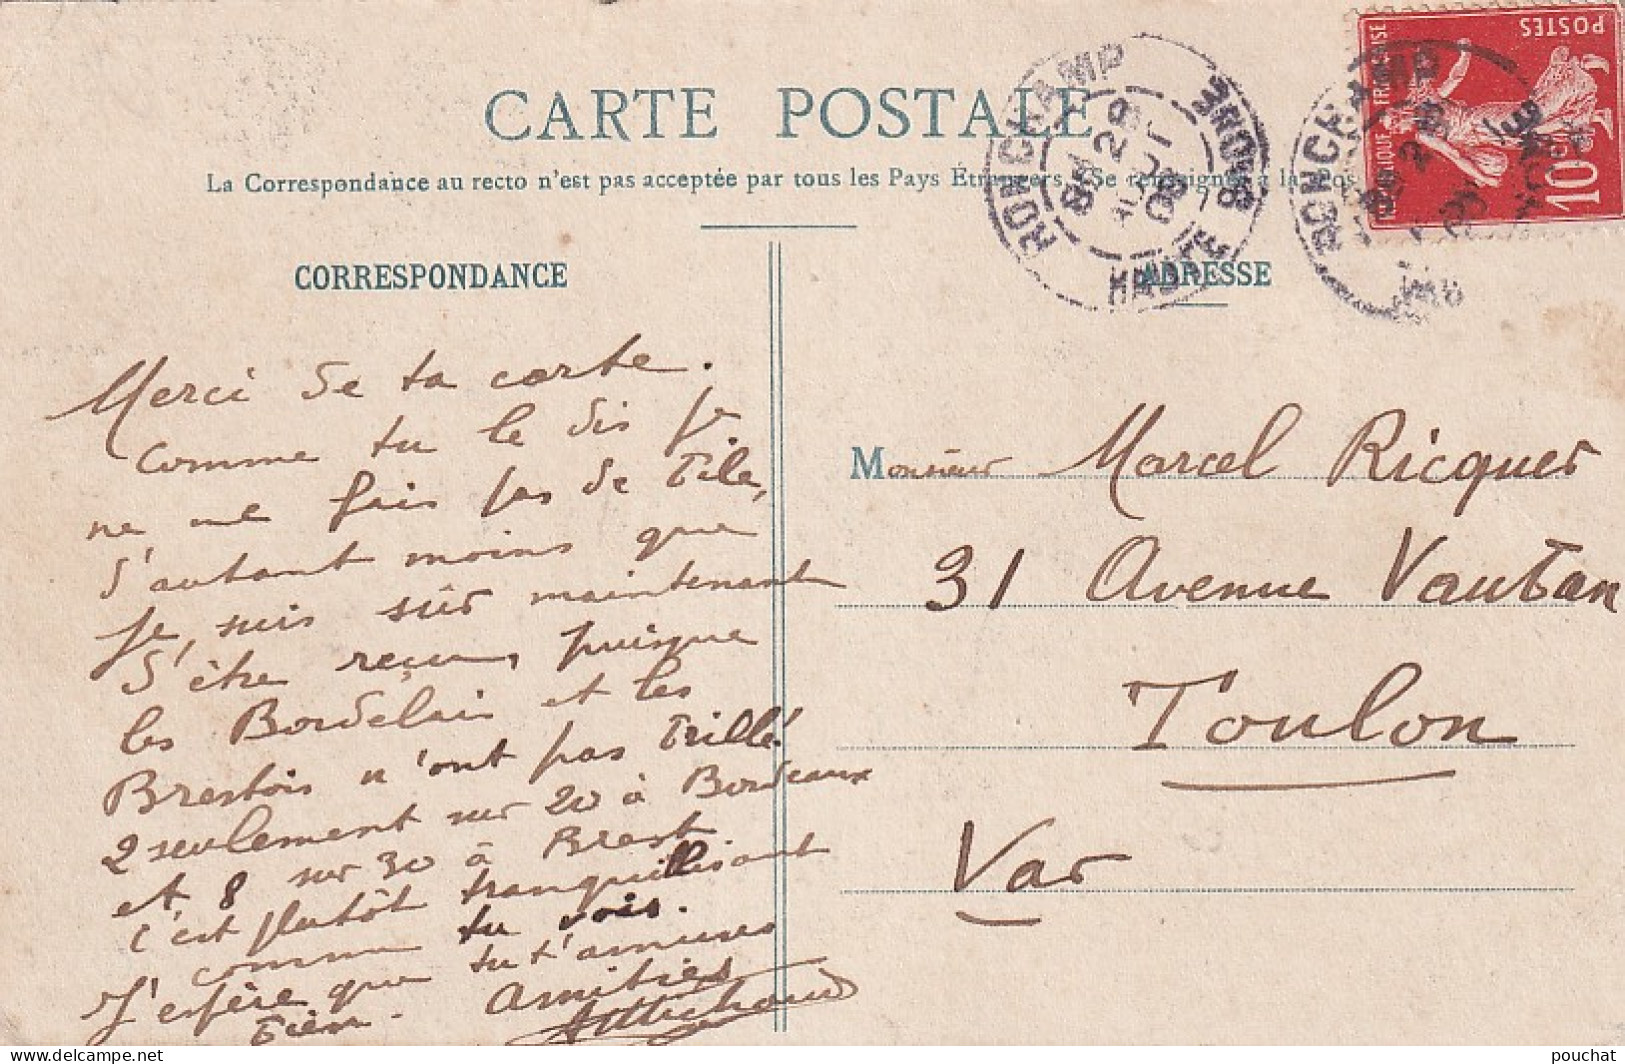 CARTE POSTALE
La Correspondance au recto n'est pas acceptée par tous les Pays Étrangers.
CORRESPONDANCE
ADRESSE
RONCHAMP
HAUTE SAONE
28
AOUT
09
POSTES
10c
Merci de ta carte.
Comme tu le dis je
ne me fais pas de bile,
d'autant moins que
je suis sûr maintenant
d'être reçu, puisque
les Bordelais et les
Brestois n'ont pas brillé.
2 seulement sur 20 à Bordeaux
et 8 sur 30 à Brest
c'est plutôt tranquillisant
comme tu vois.
J'espère que tu t'amuses
bien. Amitiés
Monsieur Marcel Ricquer
31 Avenue Vauban
Toulon
Var
pouchat